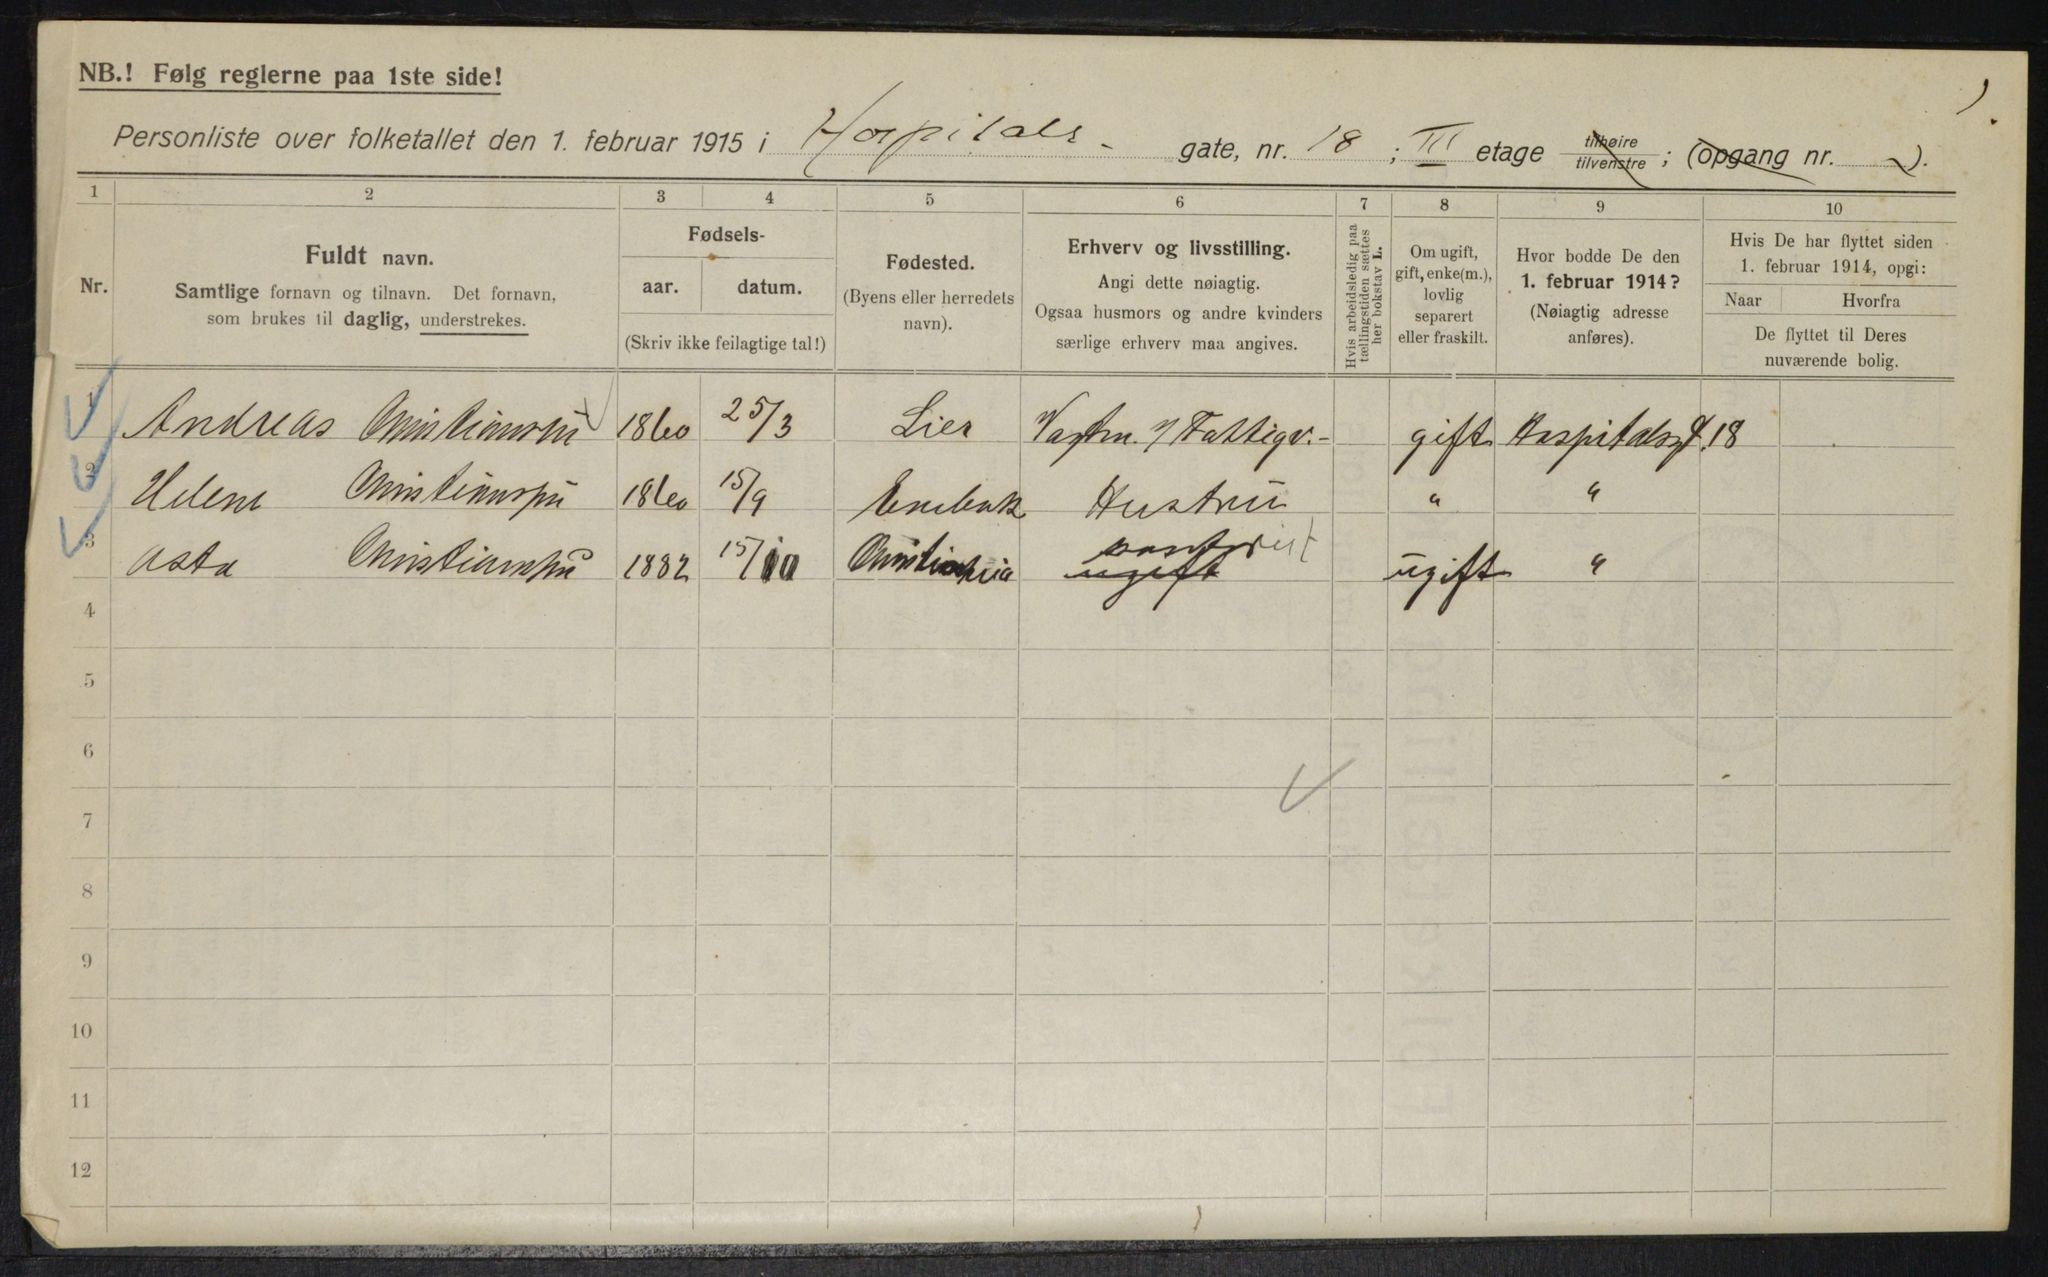 NB.! Følg reglerne paa 1ste side!
Personliste over folketallet den 1. februar 1915 i Hospitals- gate, nr. 18 ; III etage tilhøire tilvenstre ; (opgang nr. ).
1 2 3 4 5 6 7 8 9 10
Nr.
Fuldt navn.
Samtlige fornavn og tilnavn. Det fornavn,
som brukes til daglig, understrekes.
Fødsels-
aar. datum.
(Skriv ikke feilagtige tal!)
Fødested.
(Byens eller herredets
navn).
Erhverv og livsstilling.
Angi dette nøiagtig.
Ogsaa husmors og andre kvinders
særlige erhverv maa angives.
Hvis arbeidsledig paa
tællingstiden sættes
her bokstav L.
Om ugift,
gift, enke(m.),
lovlig
separert
eller fraskilt.
Hvor bodde De den
1. februar 1914?
(Nøiagtig adresse
anføres).
Hvis De har flyttet siden
1. februar 1914, opgi:
Naar Hvorfra
De flyttet til Deres
nuværende bolig.
1 Andreas Christiansen 1860 25/3 Lier gift Hospitalsgt. 18
2 Helene Christiansen 1860 15/9 Hustru " "
3 Asta Christiansen 1882 15/10 Christiania ugift ugift "
4
5
6
7
8
9
10
11
12